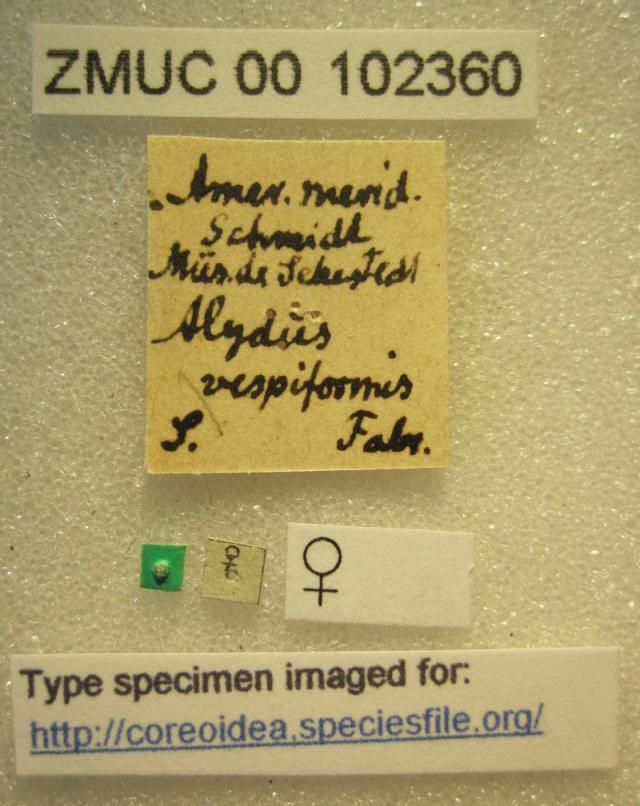 ZMUC 00 102360
Amer. merid.
Schmidt
Mus. de Sehestedt
Alydus
vespiformis
S. Fabr.
♀
Type specimen imaged for:
http://coreoidea.speciesfile.org/